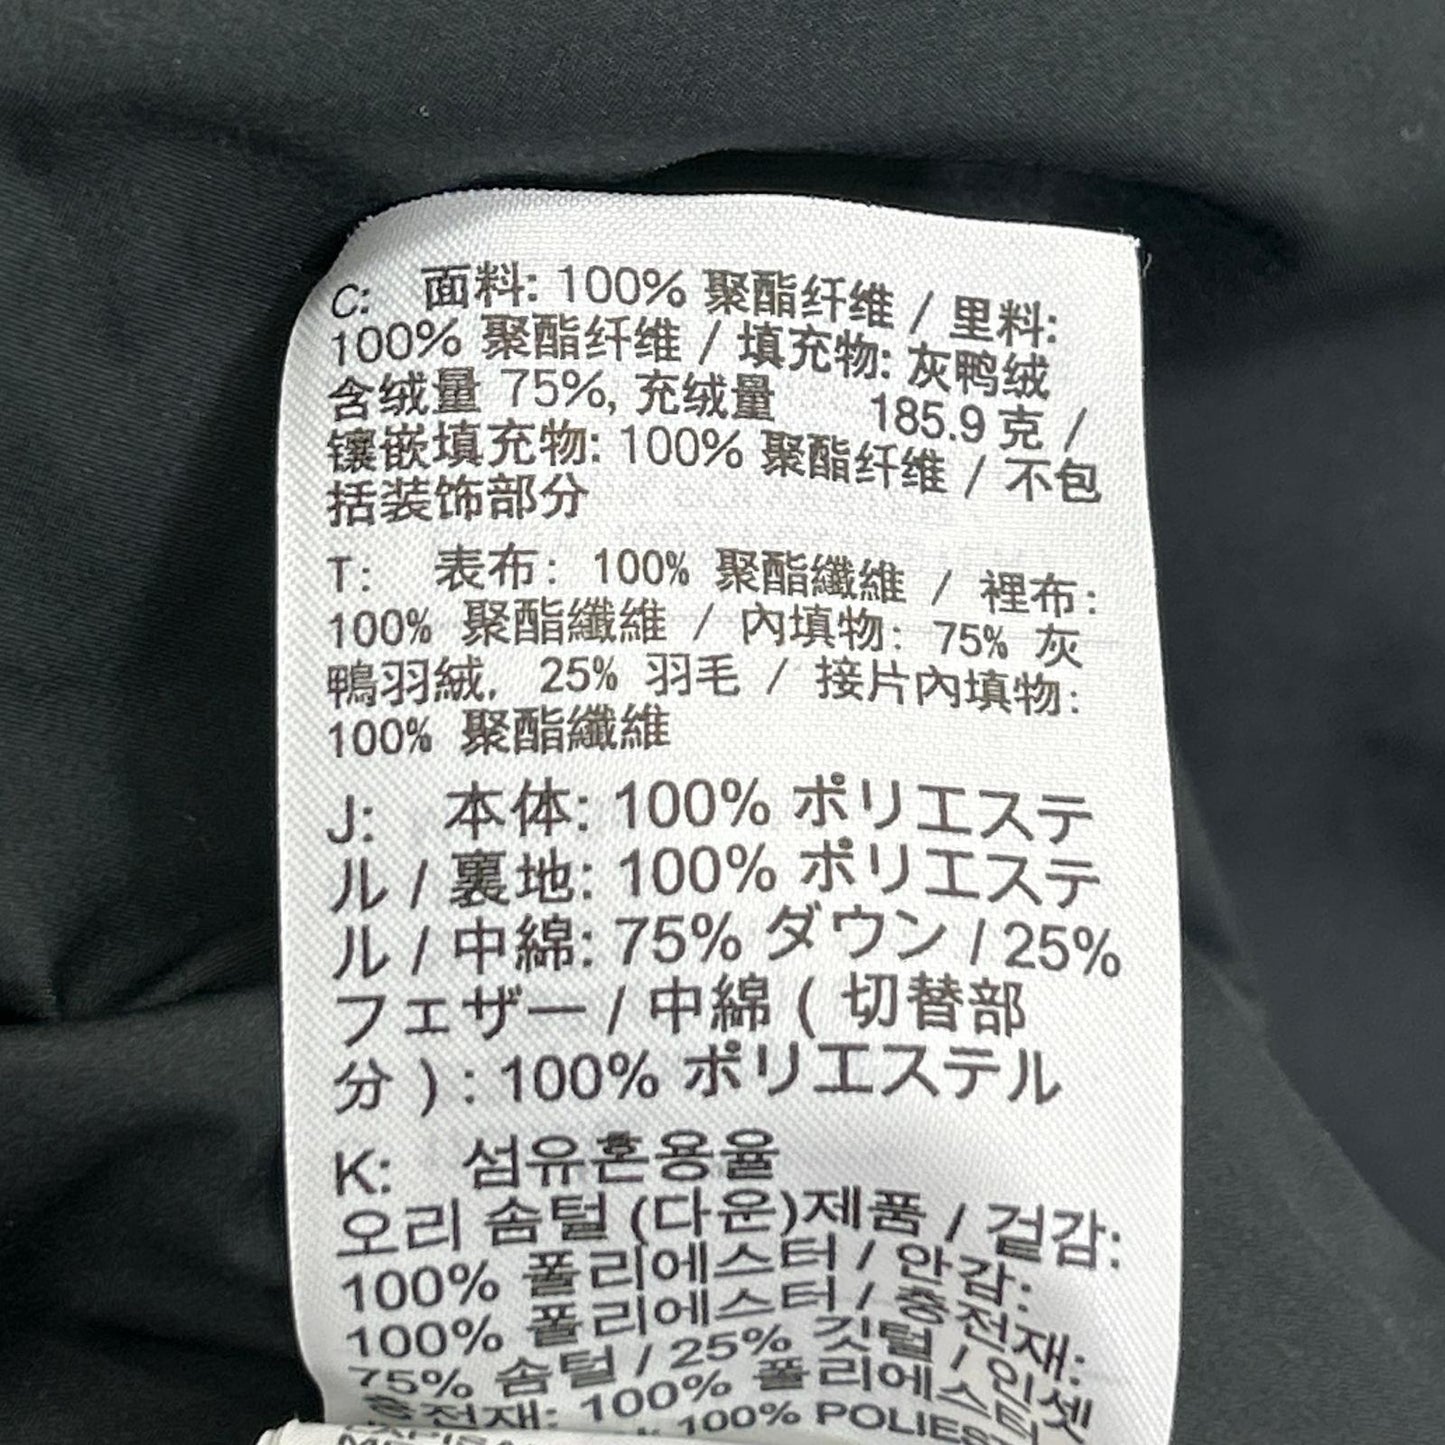 C: 面料: 100% 聚酯纤维 / 里料:
100% 聚酯纤维 / 填充物: 灰鸭绒
含绒量 75%, 充绒量 185.9 克 /
镶嵌填充物: 100% 聚酯纤维 / 不包
括装饰部分
T: 表布: 100% 聚酯纖維 / 裡布:
100% 聚酯纖維 / 內填物: 75% 灰
鴨羽絨, 25% 羽毛 / 接片內填物:
100% 聚酯纖維
J: 本体: 100% ポリエステ
ル / 裏地: 100% ポリエステ
ル / 中綿: 75% ダウン / 25%
フェザー / 中綿 ( 切替部
分 ) : 100% ポリエステル
K: 섬유혼용율
오리 솜털 (다운)제품 / 겉감:
100% 폴리에스터 / 안감:
100% 폴리에스터 / 충전재:
75% 솜털 / 25% 깃털 / 인셋
충전재: 100% 폴리에스터
100% POLIES